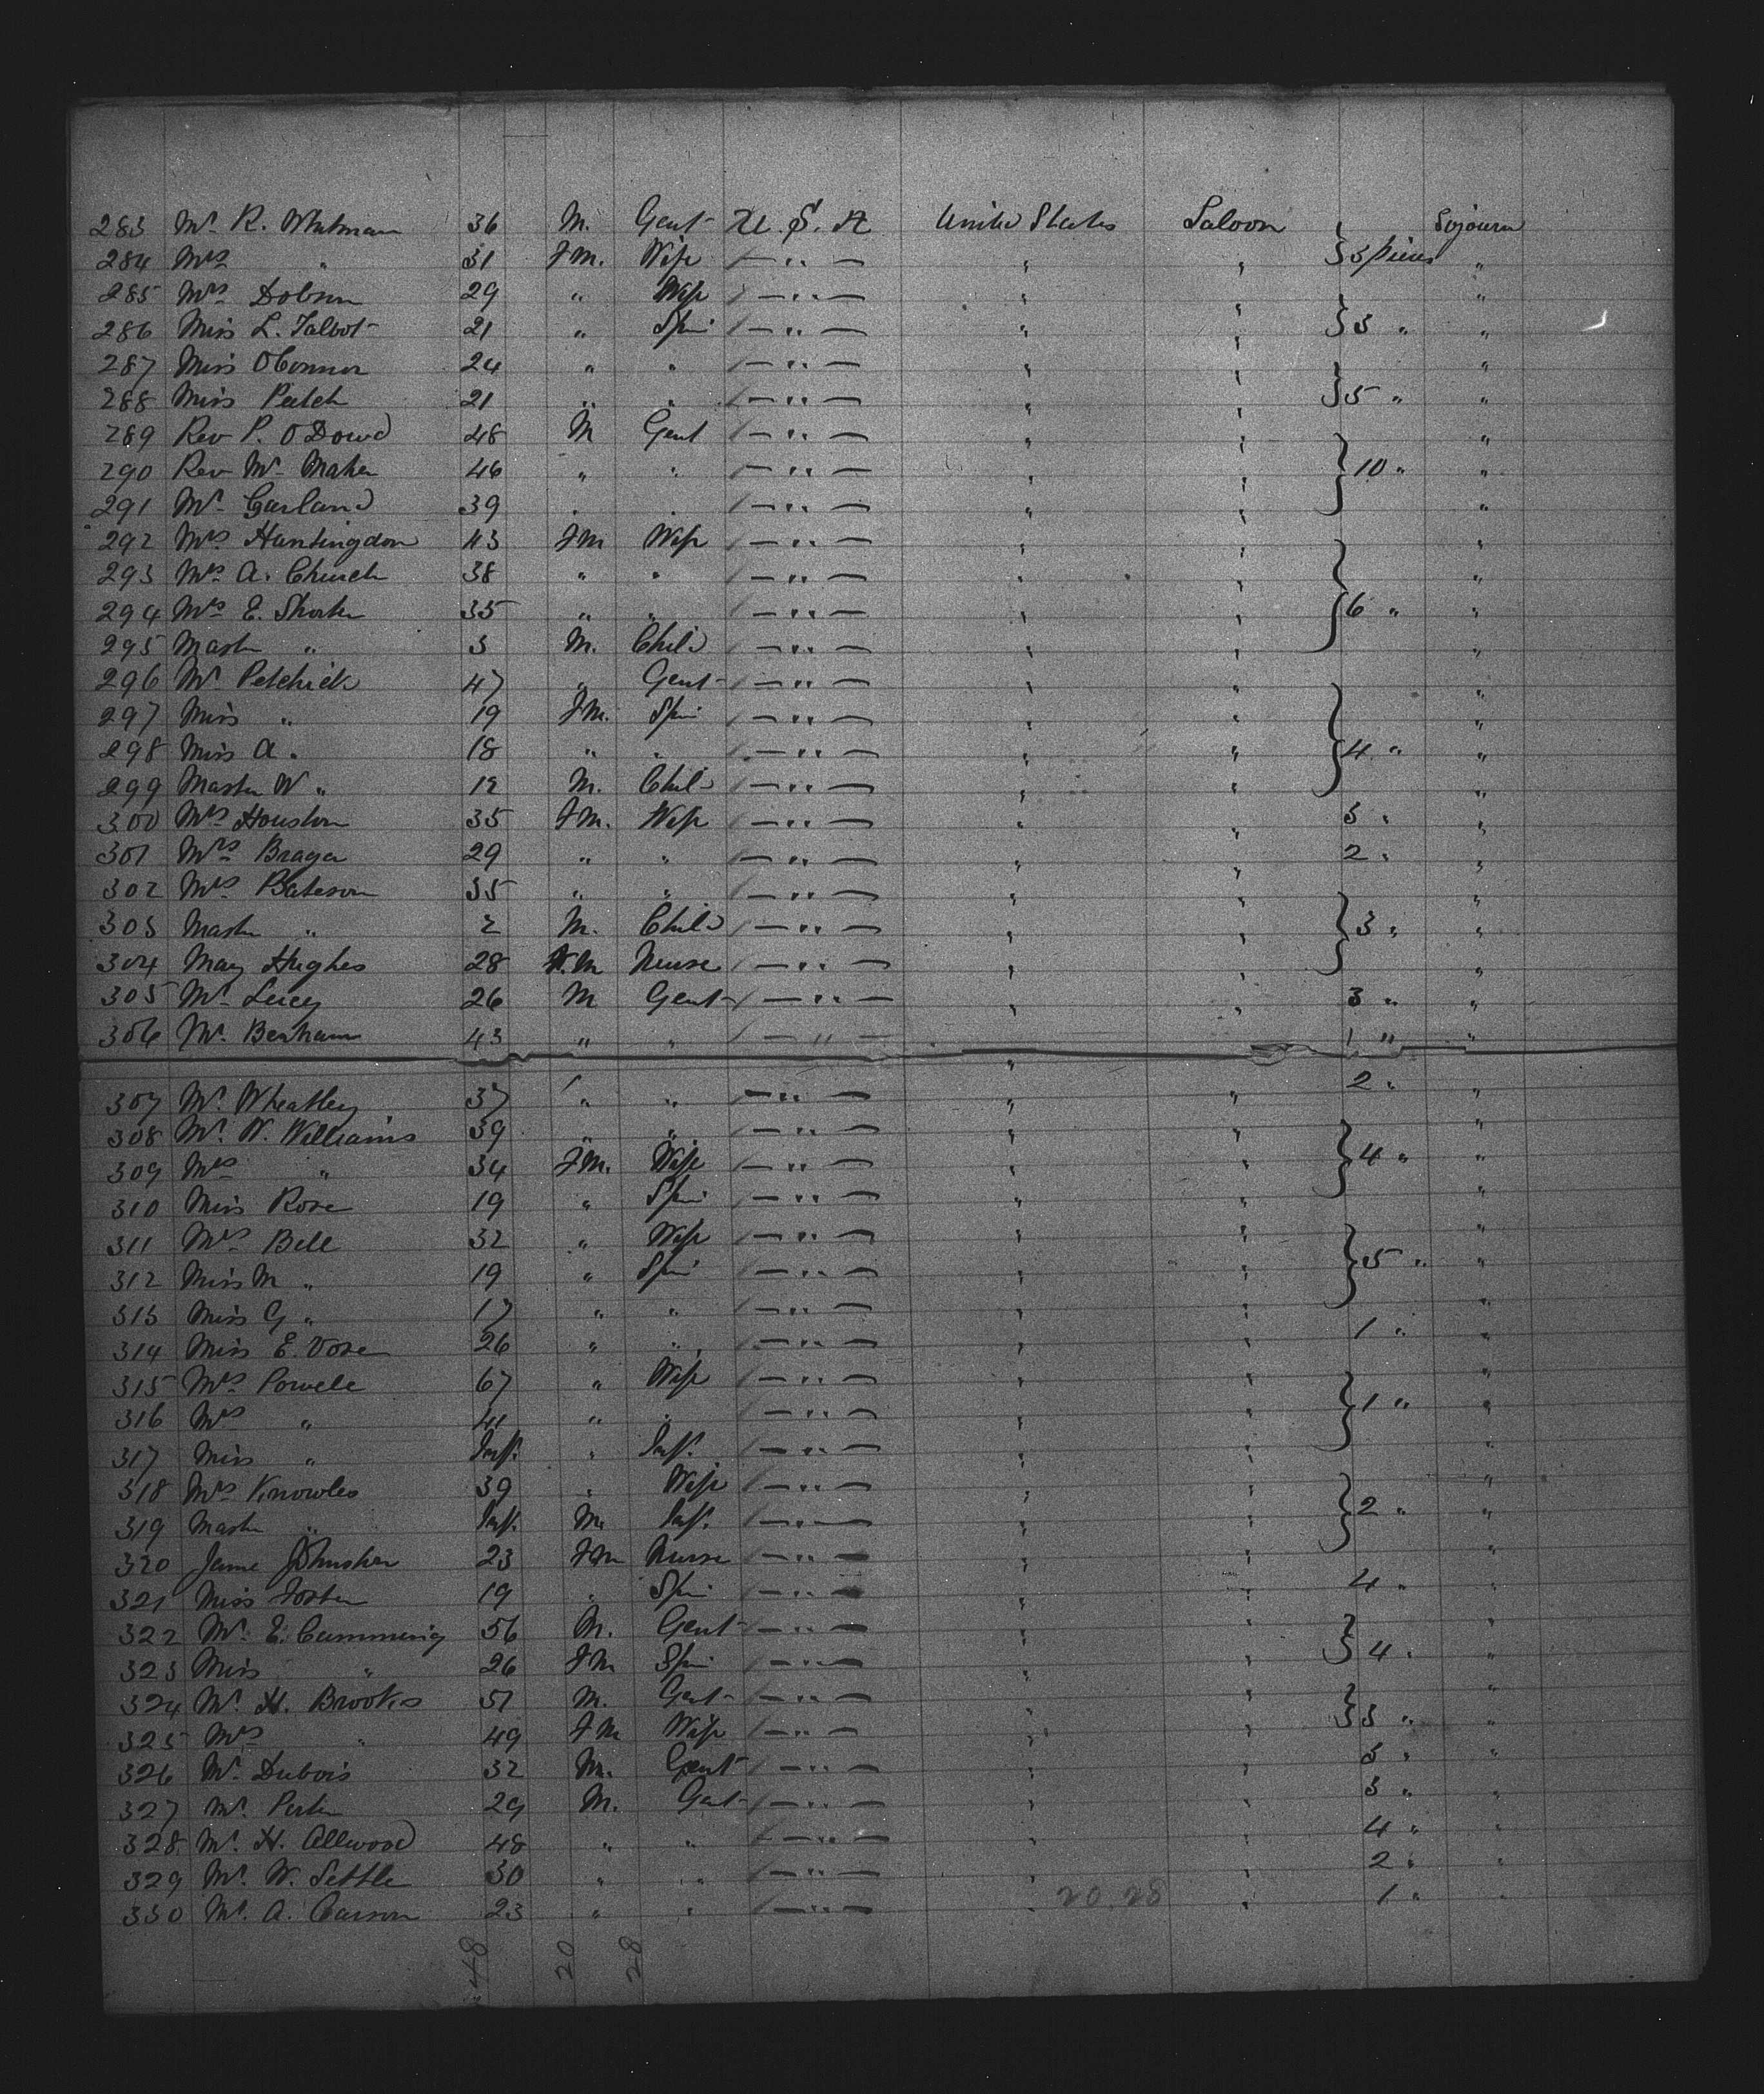 283 Mr. R. Whitman 36 M. Gent U. S. A United States Saloon Sojourn
284 Mrs " 31 FM. Wife — " — " " } 3 pieces "
285 Mrs Dobson 29 " Wife — " — " " "
286 Miss L. Talbot 21 " Spin — " — " " } 3 " "
287 Miss OConnor 24 " " — " — " " "
288 Miss Patch 21 " " — " — " " } 5 " "
289 Rev P. O Dowd 48 M Gent — " — " " "
290 Rev Mr Maher 46 " " — " — " " } 10 " "
291 Mr Garland 39 " " — " — " " "
292 Mrs Huntingdon 43 FM Wife — " — " " "
293 Mrs A. Church 38 " " — " — " " "
294 Mrs E. 35 " " — " — " " } 6 " "
295 Mastr " 3 M. Child — " — " " "
296 Mr Petchick 47 " Gent — " — " " "
297 Miss " 19 FM. Spin — " — " " "
298 Miss A. " 18 " " — " — " " } 4 " "
299 Mastr W " 12 M. Child — " — " " "
300 Mrs Houston 35 FM. Wife — " — " " 5 " "
301 Mrs Braga 29 " " — " — " " 2 " "
302 Mrs Bateson 35 " " — " — " " "
303 Mastr " 2 M. Child — " — " " } 3 " "
304 May Hughes 28 F.M Nurse — " — " " "
305 Mr Lucy 26 M Gent — " — " " 3 " "
306 Mr. Benham 43 " " — " — " 1 " "
307 Mr. Wheatley 37 " " — " — " " 2 " "
308 Mr. W. Williams 39 " " — " — " " "
309 Mrs " 34 FM. Wife — " — " " } 4 " "
310 Miss Rose 19 " Spin — " — " " "
311 Mrs Bell 32 " Wife — " — " " "
312 Miss M " 19 " Spin — " — " " } 5 " "
313 Miss G " 17 " " — " — " " "
314 Miss E. Vose 26 " " — " — " " 1 " "
315 Mrs Powell 67 " Wife — " — " " "
316 Mrs " 41 " " — " — " " } 1 " "
317 Miss " Inft. " Inft. — " — " " "
318 Mrs Knowles 39 " Wife — " — " " "
319 Mastr " Inft. M. Inft. — " — " " } 2 " "
320 Jane Johnston 23 FM Nurse — " — " " "
321 Miss Foster 19 " Spin — " — " " 4 " "
322 Mr. E. Cumming 56 M. Gent — " — " " "
323 Miss " 26 FM Spin — " — " " } 4 " "
324 Mr. H. Brooks 51 M. Gent — " — " " "
325 Mrs " 49 FM Wife — " — " " } 3 " "
326 Mr. Dubois 32 M. Gent — " — " " 3 " "
327 Mr. 29 M. Gent — " — " " 3 " "
328 Mr. H. Allwood 48 " " — " — " " 4 " "
329 Mr. W. Settle 30 " " — " — " " 2 " "
330 Mr. A. Carson 23 " " — " — " 20.28 " 1 " "
48 20 28